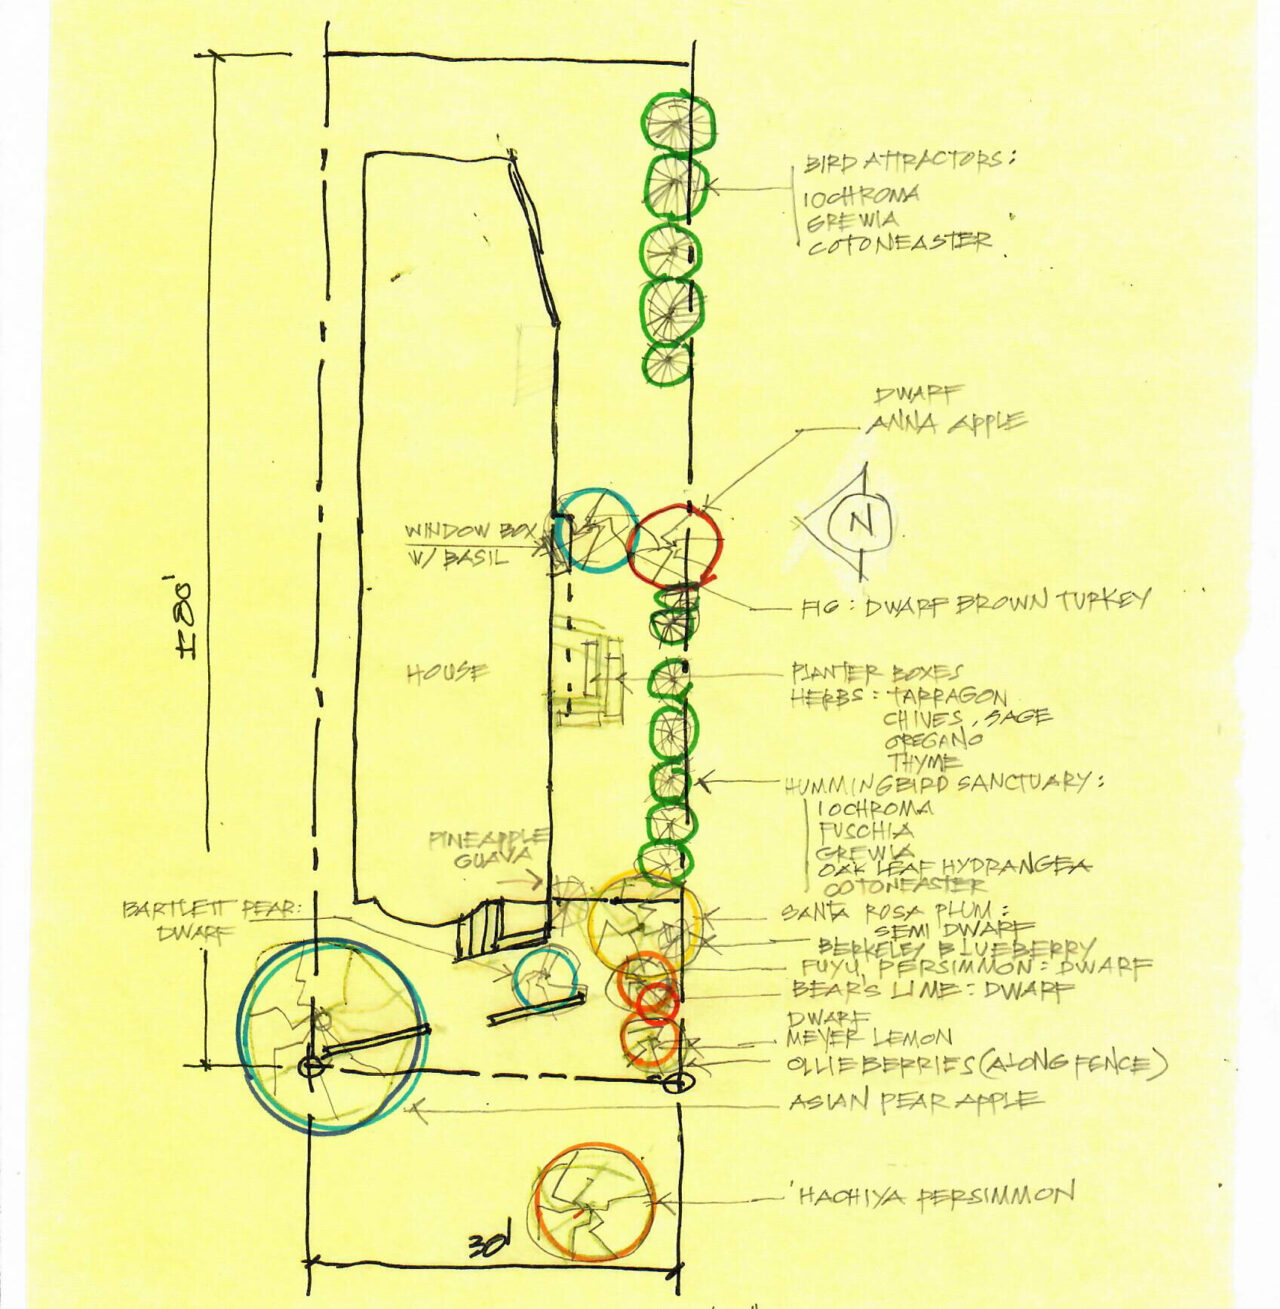 BIRD ATTRACTORS:
IOCHROMA
GREWIA
COTONEASTER
DWARF
ANNA APPLE
N
WINDOW BOX
W/ BASIL
FIG: DWARF BROWN TURKEY
±80'
HOUSE
PLANTER BOXES
HERBS: TARRAGON
CHIVES, SAGE
OREGANO
THYME
HUMMINGBIRD SANCTUARY:
IOCHROMA
FUSCHIA
GREWIA
OAK LEAF HYDRANGEA
COTONEASTER
PINEAPPLE
GUAVA
BARTLETT PEAR:
DWARF
SANTA ROSA PLUM:
SEMI DWARF
BERKELEY BLUEBERRY
FUYU PERSIMMON: DWARF
BEAR'S LIME: DWARF
DWARF
MEYER LEMON
OLLIEBERRIES (ALONG FENCE)
ASIAN PEAR APPLE
HACHIYA PERSIMMON
30'